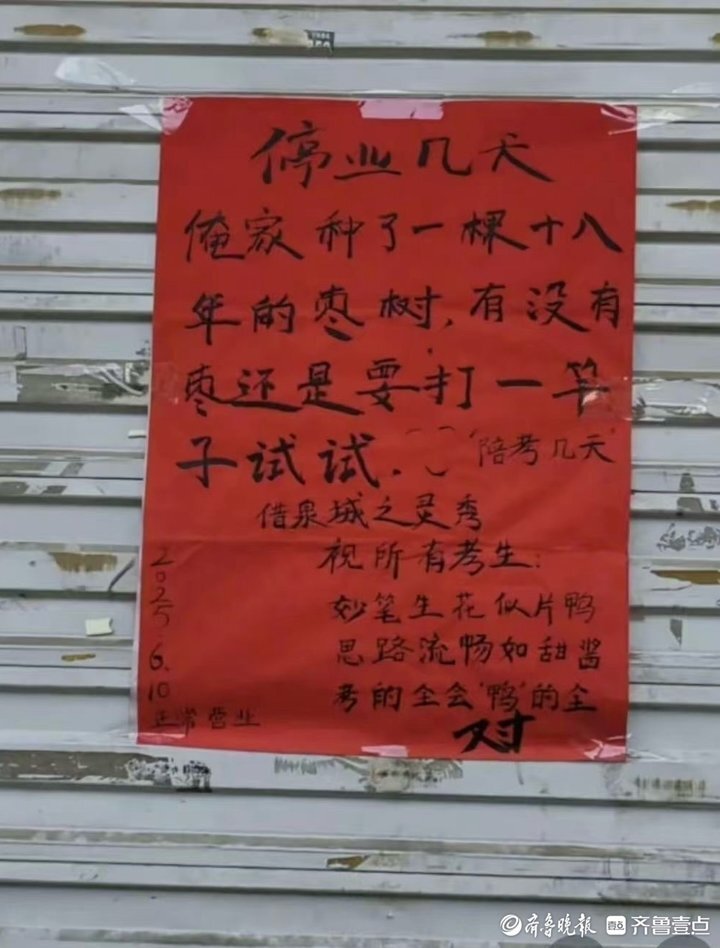 停业几天
俺家种了一棵十八
年的枣树,有没有
枣还是要打一竿
子试试.
陪考几天
借泉城之灵秀
祝所有考生:
妙笔生花似片鸭
思路流畅如甜酱
考的全会"鸭"的全
对
2025.6.10
正常营业
齐鲁晚报 齐鲁壹点